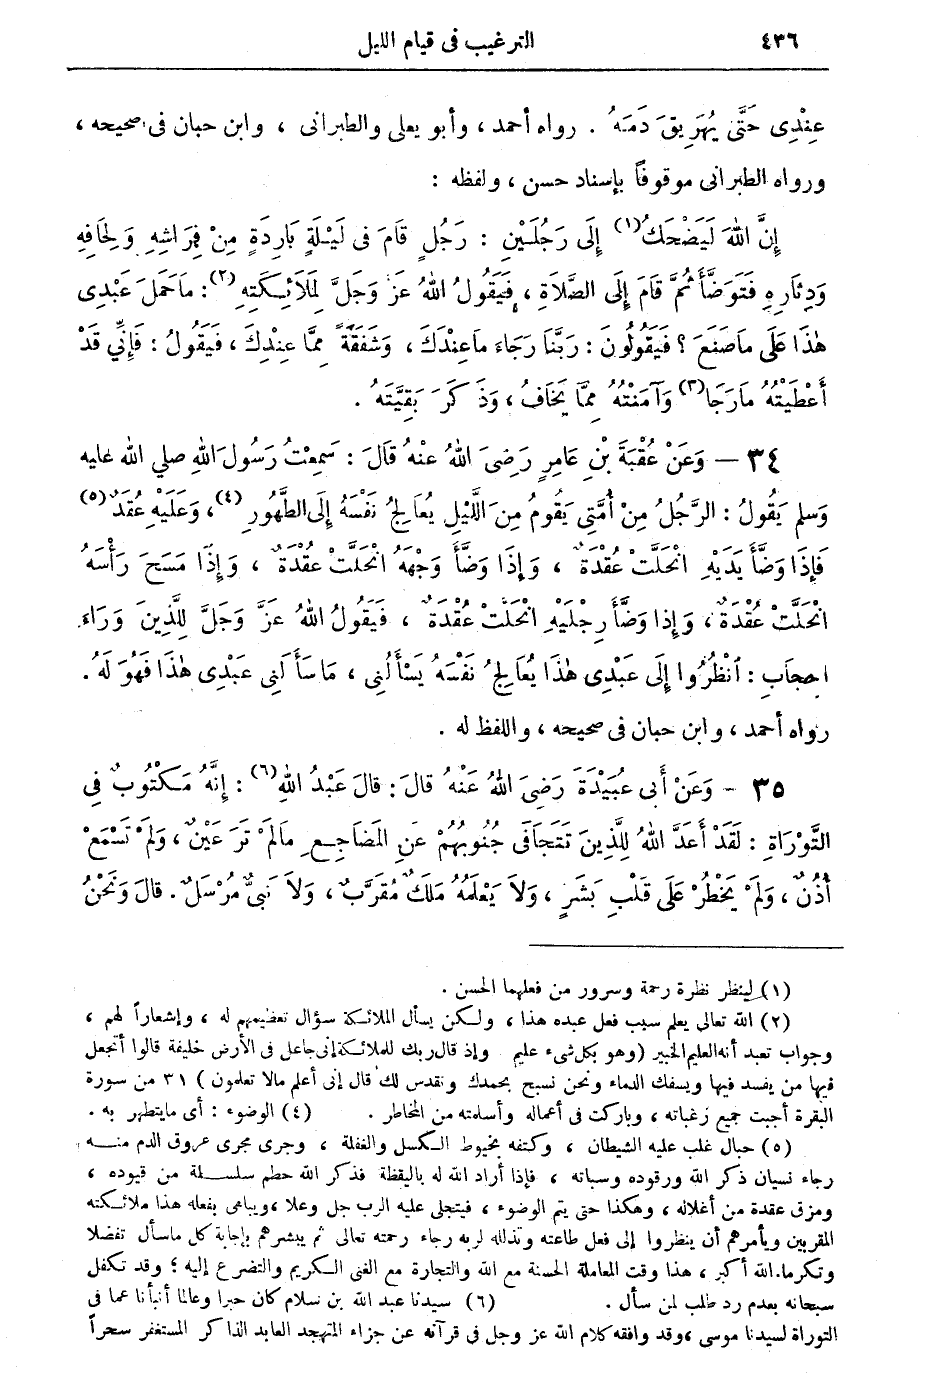 ٤٣٦ الترغيب فى قيام الليل
عِنْدِى حَتَّى يُهَرِيقَ دَمَهُ . رواه أحمد ، وأبو يعلى والطبرانى ، وابن حبان فى صحيحه ،
ورواه الطبرانى موقوفاً بإسناد حسن ، ولفظه :
إِنَّ اللهَ لَيَضْحَكُ (١) إِلَى رَجُلَيْنِ : رَجُلٍ قَامَ فى لَيْلَةٍ بَارِدَةٍ مِنْ فِرَاشِهِ وَلِحَافِهِ
وَدِثَارِهِ فَتَوَضَّأَ ثُمَّ قَامَ إِلَى الصَّلَاةِ ، فَيَقُولُ اللهُ عَزَّ وَجَلَّ لِمَلَائِكَتِهِ (٢) : مَاحَمَلَ عَبْدِى
هٰذَا عَلَى مَاصَنَعَ ؟ فَيَقُولُونَ : رَبَّنَا رَجَاءَ مَاعِنْدَكَ ، وَشَفَقَةً مِمَّا عِنْدِكَ ، فَيَقُولُ : فَإِنِّي قَدْ
أَعْطَيْتُهُ مَارَجَا (٣) وَآمَنْتُهُ مِمَّا يَخَافُ ، وَذَكَرَ بَقِيَّتَهُ .
٣٤ — وَعَنْ عُقْبَةَ بْنِ عَامِرٍ رَضِىَ اللهُ عَنْهُ قَالَ : سَمِعْتُ رَسُولَ اللهِ صلي الله عليه
وَسلم يَقُولُ : الرَّجُلُ مِنْ أُمَّتِي يَقُومُ مِنَ اللَّيْلِ يُعَالِجُ نَفْسَهُ إِلَى الطَّهُورِ (٤) ، وَعَلَيْهِ عُقَدٌ (٥)
فَإِذَا وَضَّأَ يَدَيْهِ انْحَلَّتْ عُقْدَةٌ ، وَإِذَا وَضَّأَ وَجْهَهُ انْحَلَّتْ عُقْدَةٌ ، وَإِذَا مَسَحَ رَأْسَهُ
انْحَلَّتْ عُقْدَةٌ ، وَإِذا وَضَّأَ رِجْلَيْهِ انْحَلَّتْ عُقْدَةٌ ، فَيَقُولُ اللهُ عَزَّ وَجَلَّ لِلَّذِينَ وَرَاءَ
احِجَابِ : انْظُرُوا إِلَى عَبْدِى هٰذَا يُعَالِجُ نَفْسَهُ يَسْأَلُنِى ، مَاسَأَلَنِى عَبْدِى هٰذَا فَهُوَ لَهُ .
رواه أحمد ، وابن حبان فى صحيحه ، واللفظ له .
٣٥ - وَعَنْ أَبى عُبَيْدَةَ رَضِىَ اللهُ عَنْهُ قالَ : قالَ عَبْدُ اللهِ (٦) : إِنَّهُ مَكْتُوبٌ فِي
التَّوْرَاةِ : لَقَدْ أَعَدَّ اللهُ لِلَّذِينَ تَتَجَافَى جُنُوبُهُمْ عَنِ المَضَاجِعِ مَالَمْ تَرَ عَيْنٌ ، وَلَمْ تَسْمَعْ
أُذُنٌ ، وَلَمْ يَخْطُرْ عَلَى قَلْبِ بَشَرٍ ، وَلاَ يَعْلَمُهُ مَلَكٌ مُقَرَّبٌ ، وَلاَ نَبِيٌّ مُرْسَلٌ . قالَ وَنَحْنُ
(١) لينظر نظرة رحمة وسرور من فعلهما الحسن .
(٢) الله تعالى يعلم سبب فعل عبده هذا ، ولكن يسأل الملائكة سؤال تعظيمهم له ، وإشعاراً لهم ،
وجواب تعبد أنه العليم الخبير (وهو بكل شىء عليم وإذ قال ربك للملائكة إنى جاعل فى الأرض خليفة قالوا أتجعل
فيها من يفسد فيها ويسفك الدماء ونحن نسبح بحمدك ونقدس لك قال إنى أعلم مالا تعلمون ) ٣١ من سورة
البقرة أجبت جميع رغباته ، وباركت فى أعماله وأسلمته من المخاطر . (٤) الوضوء : أى مايتطهر به .
(٥) حبال غلب عليه الشيطان ، وكتفه بخيوط الكسل والغفلة ، وجرى مجرى عروق الدم منه
رجاء نسيان ذكر الله ورقوده وسباته ، فإذا أراد الله له باليقظة فذكر الله حطم سلسلة من قيوده ،
ومزق عقدة من أغلاله ، وهكذا حتى يتم الوضوء ، فيتجلى عليه الرب جل وعلا ، ويباهى بفعله هذا ملائكته
المقربين ويأمرهم أن ينظروا إلى فعل طاعته وتذلله لربه رجاء رحمته تعالى ثم يبشرهم بإجابة كل ماسأل تفضلا
وتكرما. الله أكبر ، هذا وقت المعاملة الحسنة مع الله والتجارة مع الغنى الكريم والتضرع إليه ؟ وقد تكفل
سبحانه بعدم رد طلب لمن سأل . (٦) سيدنا عبد الله بن سلام كان حبرا وعالما أنبأنا عما فى
التوراة لسيدنا موسى ، وقد وافقه كلام الله عز وجل فى قرآنه عن جزاء المتهجد العابد الذاكر المستغفر سحراً